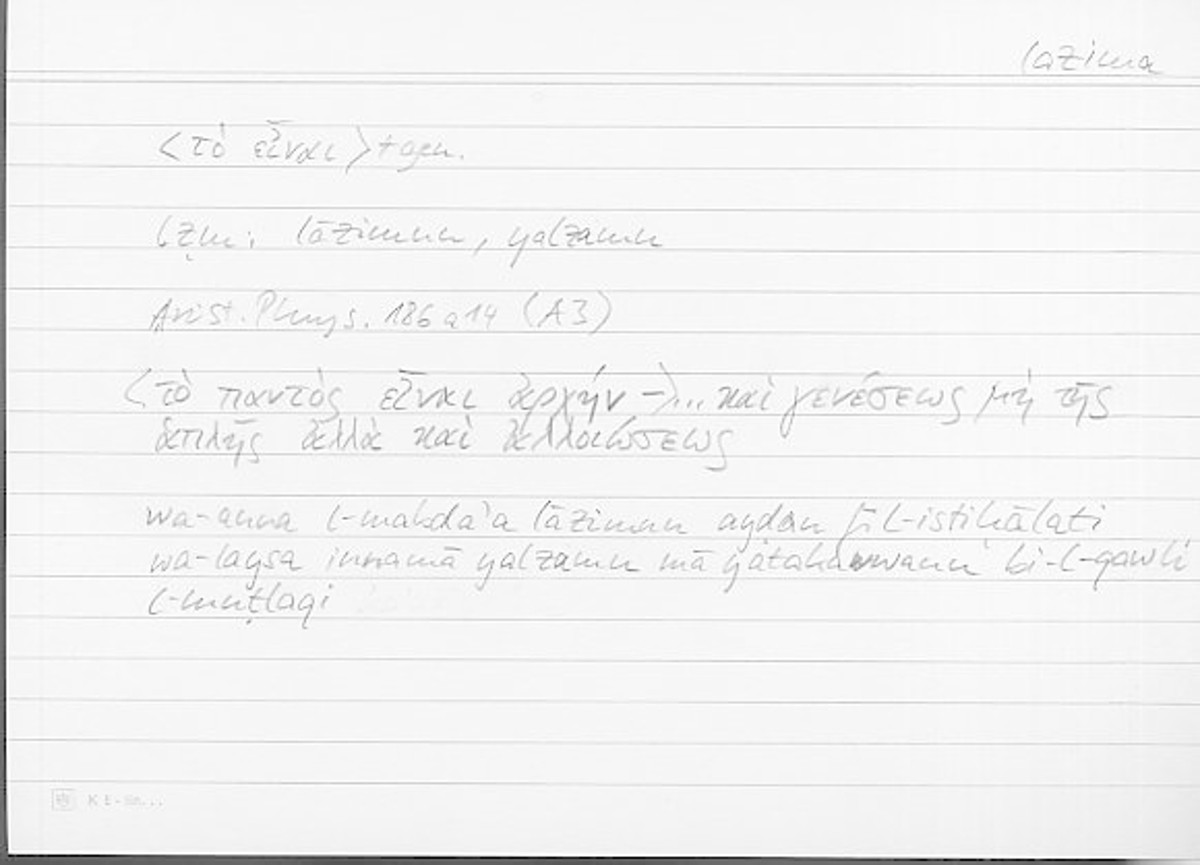 lazima
<τὸ εἶναι> + gen.
lzm: lāzimun, yalzamu
Arist. Phys. 186 a 14 (A3)
<τὸ παντὸς εἶναι ἀρχήν –> ... καὶ γενέσεως μὴ τῆς
ἁπλῆς ἀλλὰ καὶ ἀλλοιώσεως
wa-anna l-mabda'a lāzimun ayḍan fī l-istiḥālati
wa-laysa innamā yalzamu mā yatakawwanu bi-l-qawli
l-muṭlaqi